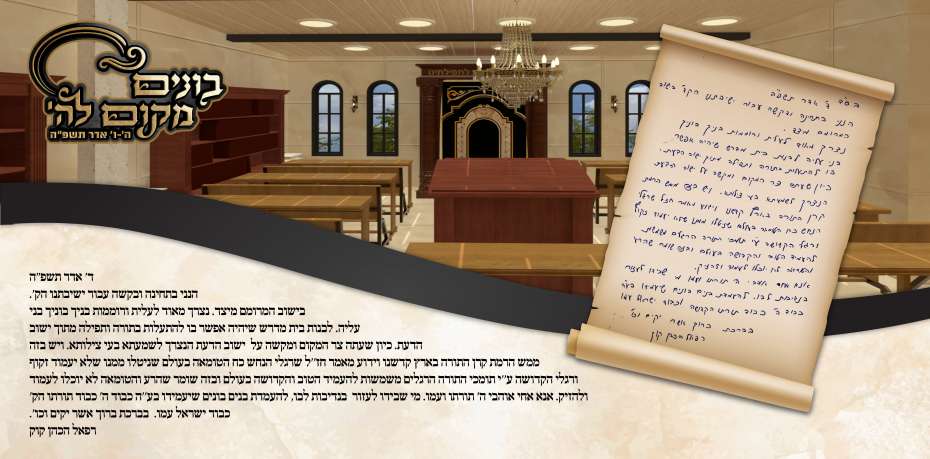 בונים
מקום לה'
ה'-ו' אדר תשפ"ה
ב"ס"ד ד' אדר תשפ"ה
הנני בתחינה ובקשה עבור ישיבתנו הק' בישוב
המרומם מיצד.
נצרך מאוד לעלית ורוממות בניך בוניך
בני עליה לבנות בית מדרש שיהיה אפשר
בו להתעלות בתורה ותפלה מתוך ישוב הדעת.
כיון שעתה צר המקום ומקשה על ישוב הדעת
הנצרך לשמעתא בעי צילותא. ויש בזה ממש הרמת
קרן התורה בארץ קדשנו וידוע מאמר חז"ל שרגלי
הנחש כח הטומאה בעולם שניטלו ממנו שלא יעמוד זקוף
ורגלי הקדושה ע"י תומכי התורה הרגלים משמשות
להעמיד הטוב והקדושה בעולם ובזה שומר שהרע
והטומאה לא יוכלו לעמוד ולהזיק.
אנא אחי אוהבי ה' תורתו ועמו מי שבידו לעזור
בנדיבות לבו. להעמדת בנים בונים שיעמידו בע"ה
כבוד ה' כבוד תורתו הקדושה וכבוד ישראל עמו
בברכת ברוך אשר יקים וכו'.
רפאל הכהן קוק
ד' אדר תשפ"ה
הנני בתחינה ובקשה עבור ישיבתנו הק'.
בישוב המרומם מיצד. נצרך מאוד לעלית ורוממות בניך בוניך בני
עליה. לבנות בית מדרש שיהיה אפשר בו להתעלות בתורה ותפילה מתוך ישוב
הדעת. כיון שעתה צר המקום ומקשה על ישוב הדעת הנצרך לשמעתא בעי צילותא. ויש בזה
ממש הרמת קרן התורה בארץ קדשנו וידוע מאמר חז"ל שרגלי הנחש כח הטומאה בעולם שניטלו ממנו שלא יעמוד זקוף
ורגלי הקדושה ע"י תומכי התורה הרגלים משמשות להעמיד הטוב והקדושה בעולם ובזה שומר שהרע והטומאה לא יוכלו לעמוד
ולהזיק. אנא אחי אוהבי ה' תורתו ועמו. מי שבידו לעזור בנדיבות לבו, להעמדת בנים בונים שיעמידו בע"ה כבוד ה' כבוד תורתו הק'
כבוד ישראל עמו. בברכת ברוך אשר יקים וכו'.
רפאל הכהן קוק